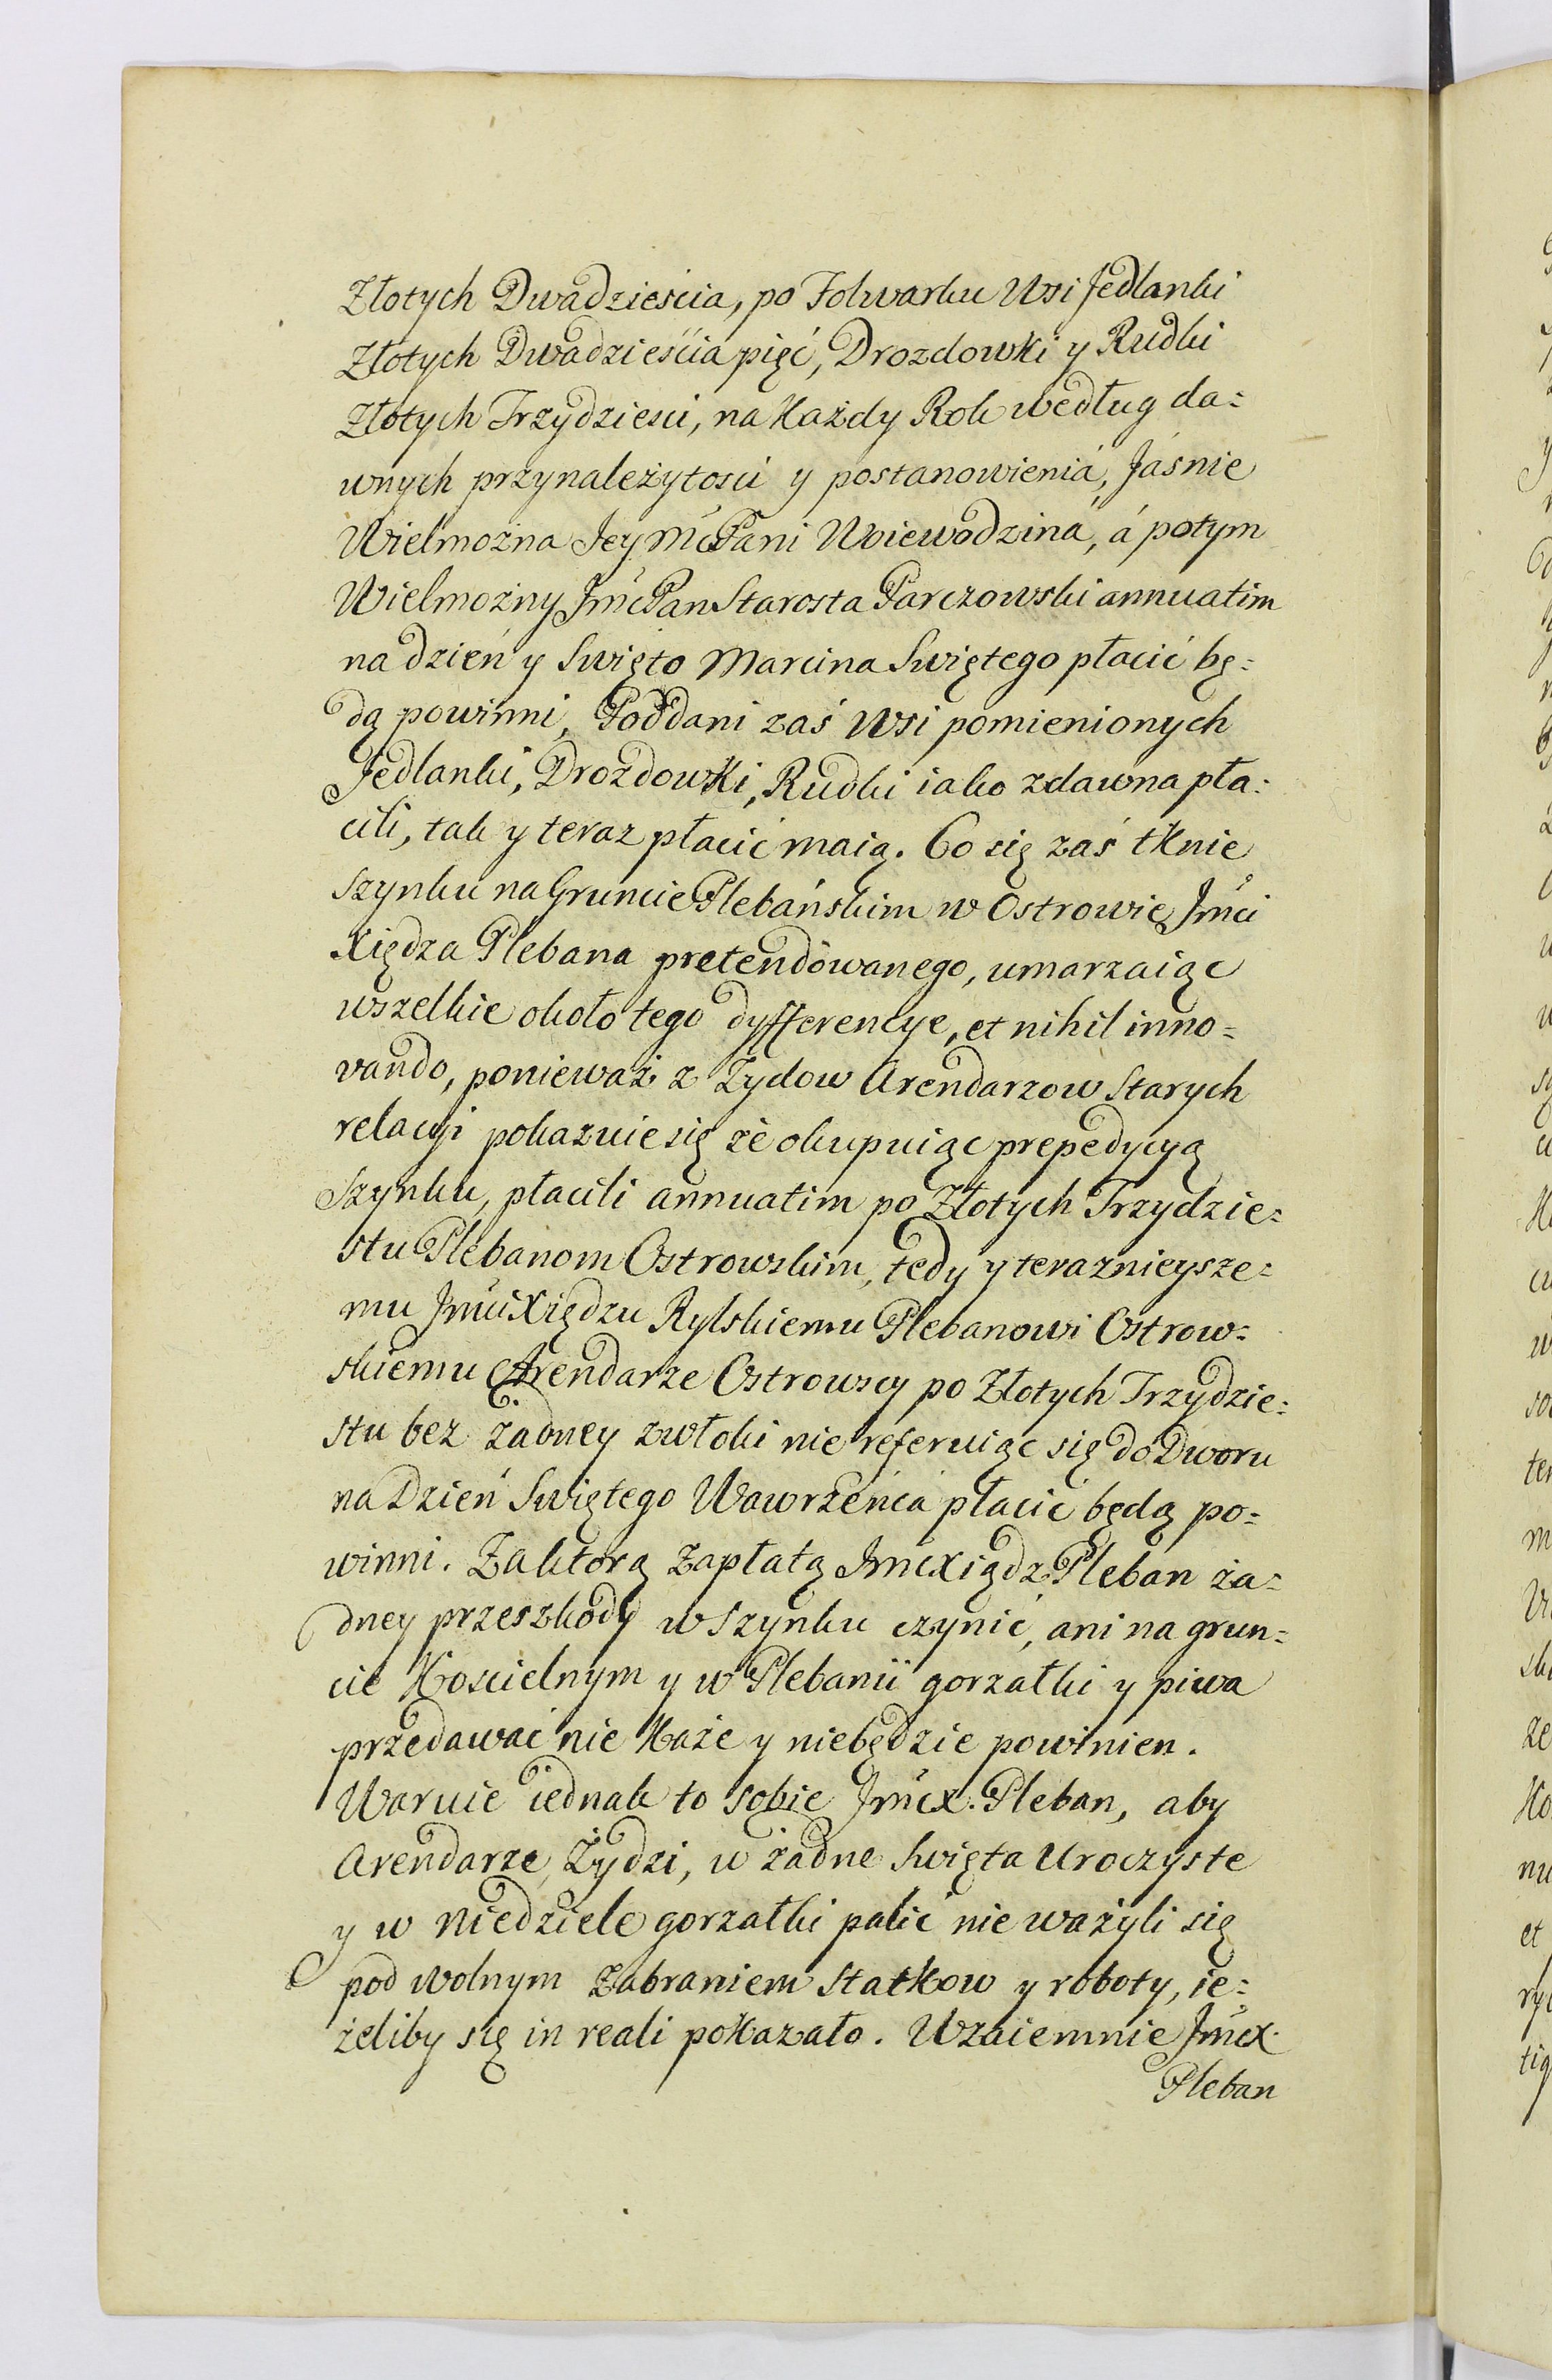 Złotych Dwadziescia, po Folwarku Wsi Jedlanki
Złotych Dwadzieścia pięć, Drozdowki y Rudki
Złotych Trzydziesci, na Każdy Rok według da=
wnych przynależytosci y postanowienia, Jaśnie
Wielmożna Jey Mć Pani Woiewodzina, á potym
Wielmożny Jmć Pan Starosta Parczowski annuatim
na dzień y Swięto Marcina Swiętego płacić bę=
dą powinni, Poddani zaś Wsi pomienionych
Jedlanki, Drozdowki, Rudki iako zdawna pła=
cili, tak y teraz płacić maią. Co się zaś tknie
Szynku na Gruncie Plebańskim w Ostrowie Jmci
Xiędza Plebana pretendowanego, umarzaiąc
wszelkie około tego dyfferencye, et nihil inno=
vando, ponieważ z Zydow Arendarzow Starych
relacyi pokazuie się że okupuiąc prepedycyą
Szynku, płacili annuatim po Złotych Trzydzie=
stu Plebanom Ostrowskim, tedy y teraznieysze=
mu Jmci Xiędzu Rylskiemu Plebanowi Ostrow=
skiemu Arendarze Ostrowscy po Złotych Trzydzie=
stu bez żadney zwłoki nie referuiąc się do Dworu
na Dzień Swiętego Wawrzeńca płacić będą po=
winni. Za ktorą zapłatą Jmć Xiądz Pleban ża=
dney przeszkody w Szynku czynić, ani na grun=
cie Koscielnym y w Plebanii gorzałki y piwa
przedawać nie Każe y niebędzie powinien.
Waruie iednak to sobie Jmć X. Pleban, aby
Arendarze, Żydzi, w żadne Swięta Uroczyste
y w Niedziele gorzałki palić nie ważyli się
pod wolnym zabraniem Statkow y roboty, ie=
żeliby się in reali pokazało. Wzaiemnie Jmć X.
Pleban